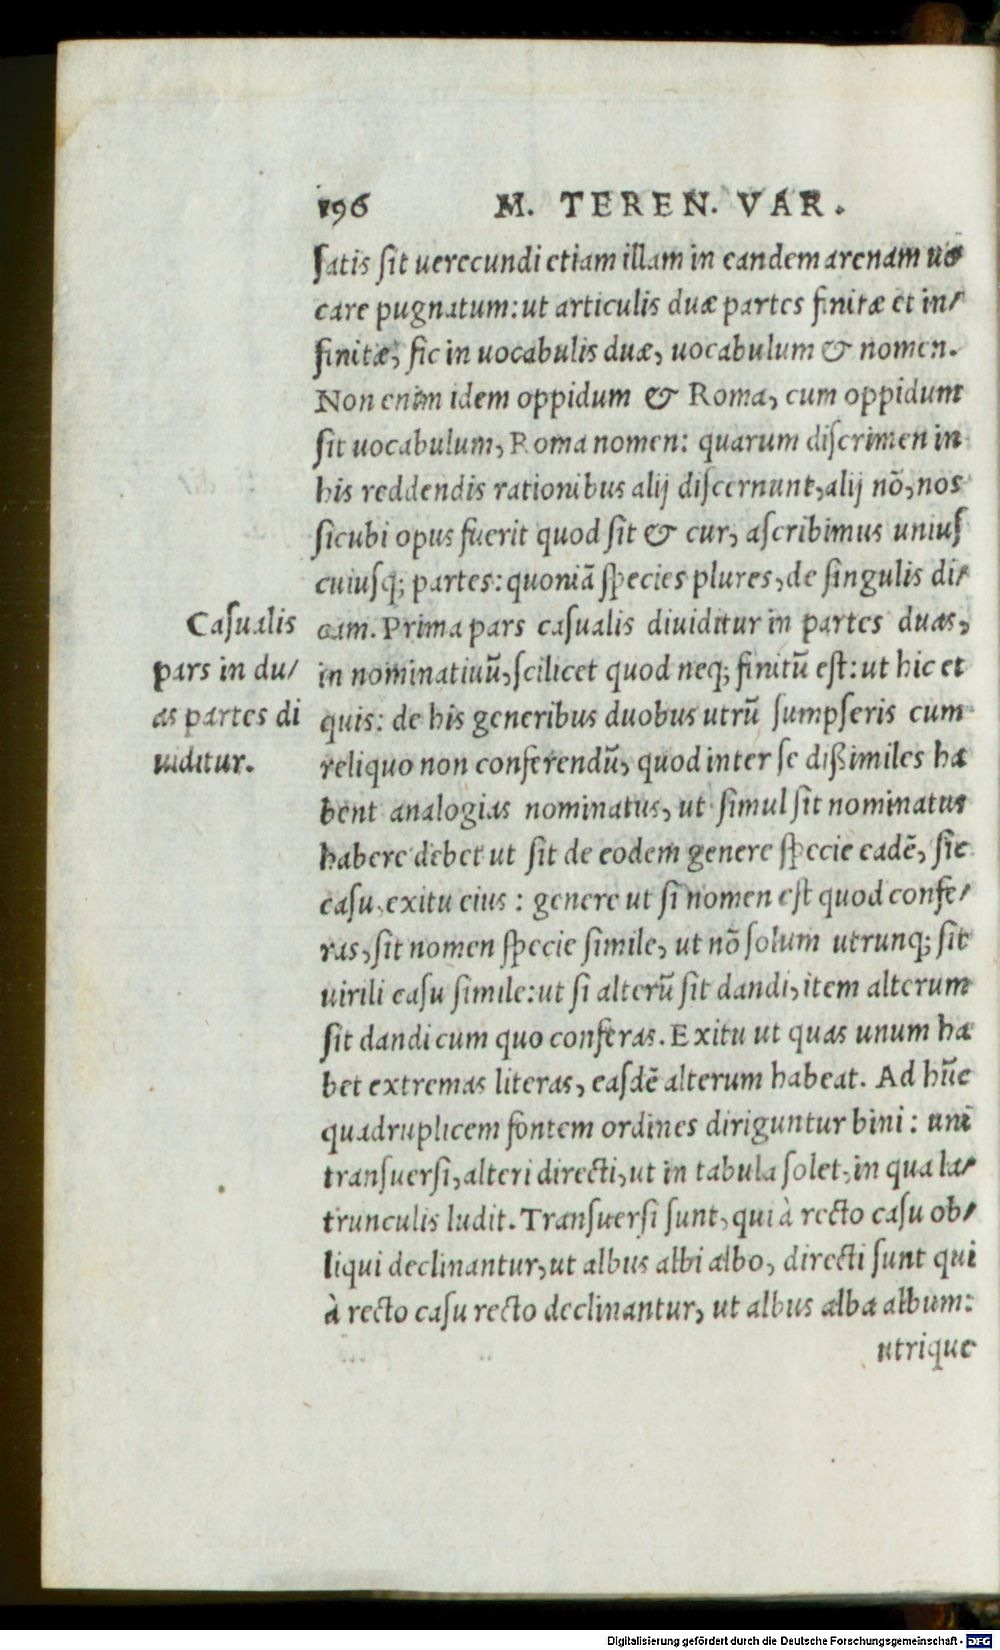 196 M. TEREN. VAR.
ſatis ſit uerecundi etiam illam in eandem arenam uo
care pugnatum: ut articulis duæ partes finitæ et in/
finitæ, ſic in uocabulis duæ, uocabulum & nomen.
Non enim idem oppidum & Roma, cum oppidum
ſit uocabulum, Roma nomen: quarum diſcrimen in
his reddendis rationibus alij diſcernunt, alij nō, nos
ſicubi opus fuerit quod ſit & cur, aſcribimus uniuſ
cuiuſq; partes: quoniā ſpecies plures, de ſingulis di/
cam. Prima pars caſualis diuiditur in partes duas,
in nominatiuū, ſcilicet quod neq; finitū eſt: ut hic et
quis: de his generibus duobus utrū ſumpſeris cum
reliquo non conferendū, quod inter ſe dißimiles ha
bent analogias nominatus, ut ſimul ſit nominatus
habere debet ut ſit de eodem genere ſpecie eadē, ſic
caſu, exitu eius : genere ut ſi nomen eſt quod confe/
ras, ſit nomen ſpecie ſimile, ut nō ſolum utrunq; ſit
uirili caſu ſimile: ut ſi alterū ſit dandi, item alterum
ſit dandi cum quo conferas. Exitu ut quas unum ha
bet extremas literas, eaſdē alterum habeat. Ad hūc
quadruplicem fontem ordines diriguntur bini : uni
tranſuerſi, alteri directi, ut in tabula ſolet, in qua la/
trunculis ludit. Tranſuerſi ſunt, qui à recto caſu ob/
liqui declinantur, ut albus albi albo, directi ſunt qui
à recto caſu recto declinantur, ut albus alba album:
utrique
Caſualis
pars in du/
as partes di
uiditur.
Digitalisierung gefördert durch die Deutsche Forschungsgemeinschaft - DFG